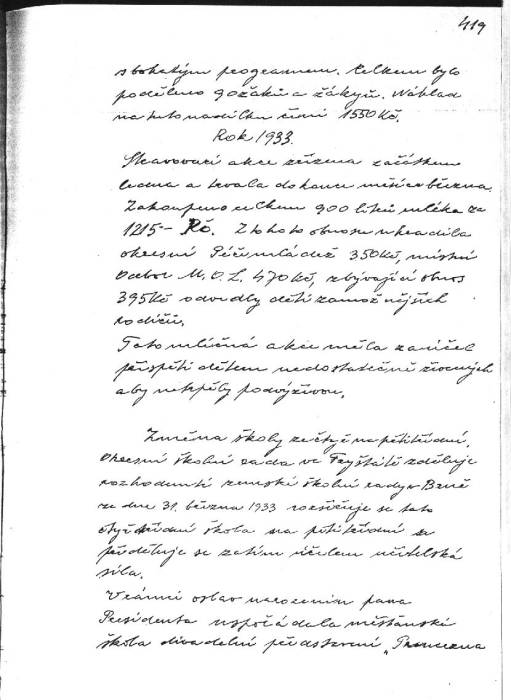 419
s bohatým programem. Celkem bylo
poděleno 90 žáků a žákyň. Náklad
na tuto nadílku činí 1550 Kč.
Rok 1933.
Stravovací akce zřízena začátkem
ledna a trvala do konce měsíce března.
Zakoupeno celkem 900 litrů mléka za
1215- Kč. Z tohoto obnosu uhradila
okresní Péče mládež 350 Kč, místní
Odbor M.O.L. 470 Kč, zbývající obnos
395 Kč odvedly děti zámožnějších
rodičů.
Tato mléčná akce měla za účel
přispěti dětem nedostatečně živených
aby netrpěly podvýživou.
Změna školy ze čtyř na pětitřídní.
Okresní školní rada ve Fryštátě zděluje
rozhodnutí zemské školní rady v Brně
ze dne 31. března 1933 rozšiřuje se tato
čtyřtřídní škola na pětitřídní a
přiděluje se zatím účelem učitelská
síla.
V rámci oslav narozenin pana
Presidenta uspořádala měšťanská
škola divadelní představení „